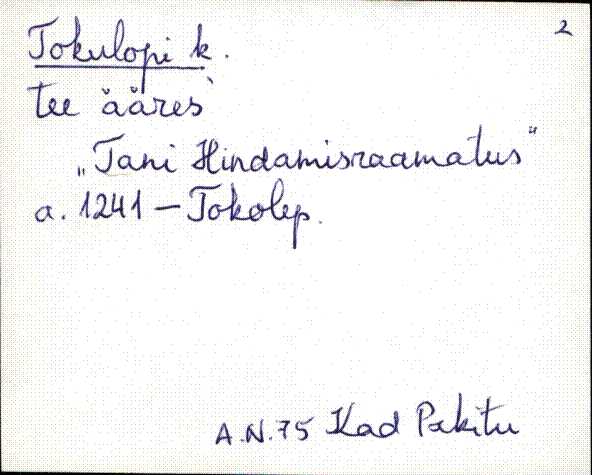 2
Tokulopi k.
tee ääres
„Tani Hindamisraamatus"
a. 1241 – Tokolep.
A.N. 75 Kad